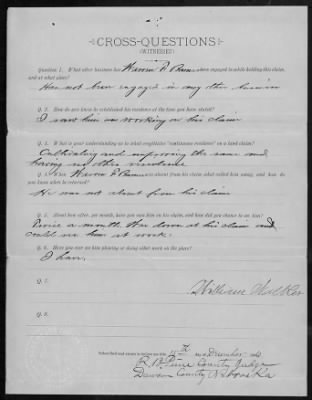 CROSS-QUESTIONS
(WITNESSES)
Question 1. What other business has Warren F. been engaged in while holding this claim,
and at what place?
Has not been engaged in any other business
Q. 2. How do you know he established his residence at the time you have stated?
I saw him on working on his claim
Q. 3. What is your understanding as to what constitutes "continuous residence" on a land claim?
Cultivating and improving the same and
having no other residence
Q. 4. Was Warren F. absent from his claim and how do
you know when he returned?
He was not absent from his claim
Q. 5. About how often, per month, have you seen him on his claim, and how did you chance to see him?
Twice a month Was down at his claim and
could see him at work.
Q. 6. Have you seen him plowing or doing other work on the place?
I have.
Q. 7.
William Walker
Q. 8.
Q. 9.
Subscribed and sworn to before me this day December
R. B. Pierce County Judge
Dawson County Nebraska